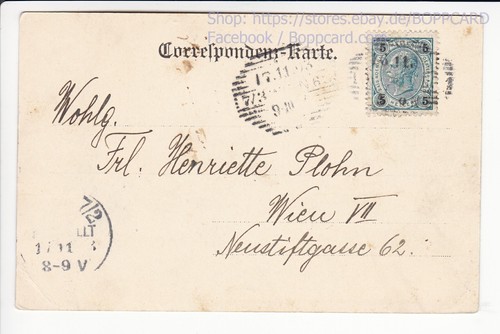 Shop: https://stores.ebay.de/BOPPCARD
Facebook / Boppcard.com
Correspondenz-Karte.
5 5
17.11.
17.11.
7/3
9-10
5 5
Wohlg.
Frl. Henriette Plohn
Wien VII
Neustiftgasse 62.
7/2
17 11
8-9 V